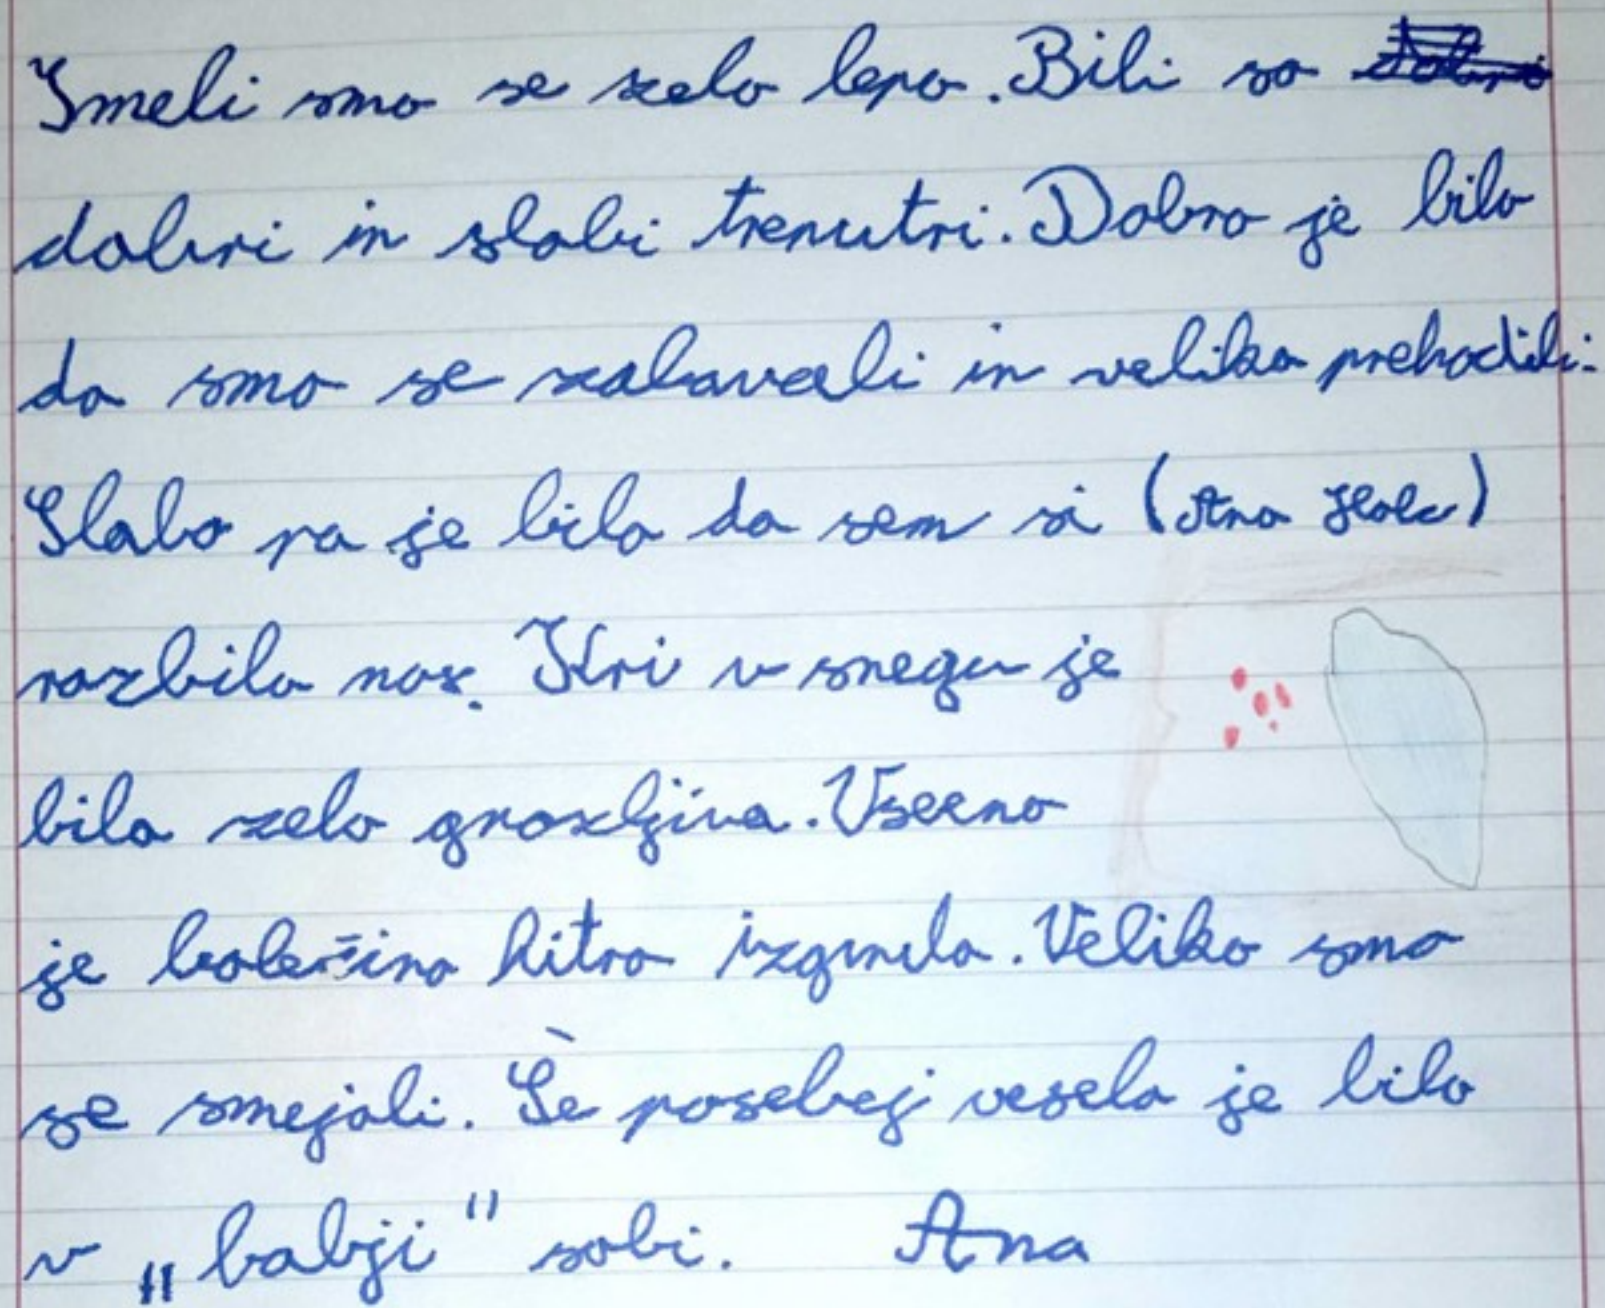 Imeli smo se zelo lepo. Bili so
dobri in slabi trenutri. Dobro je bilo
da smo se zabavali in veliko prehodili.
Slabo pa je bilo da sem si (Ana
razbila nos. Kri v snegu je
bila zelo grozljiva. Vseeno
je bolečina hitro izginila. Veliko smo
se smejali. Še posebej veselo je bilo
v „babji" sobi. Ana